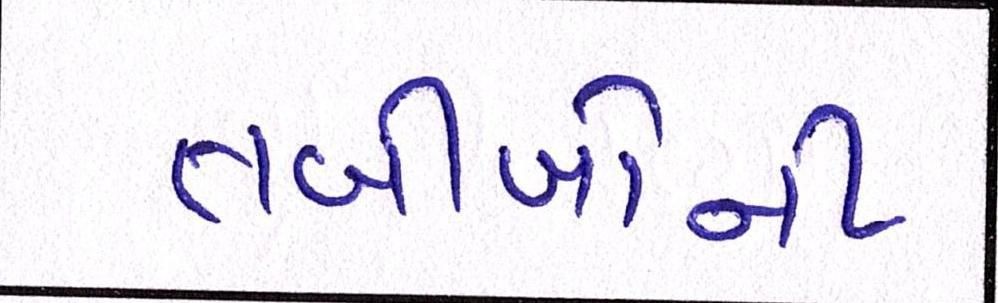 તબીબોની